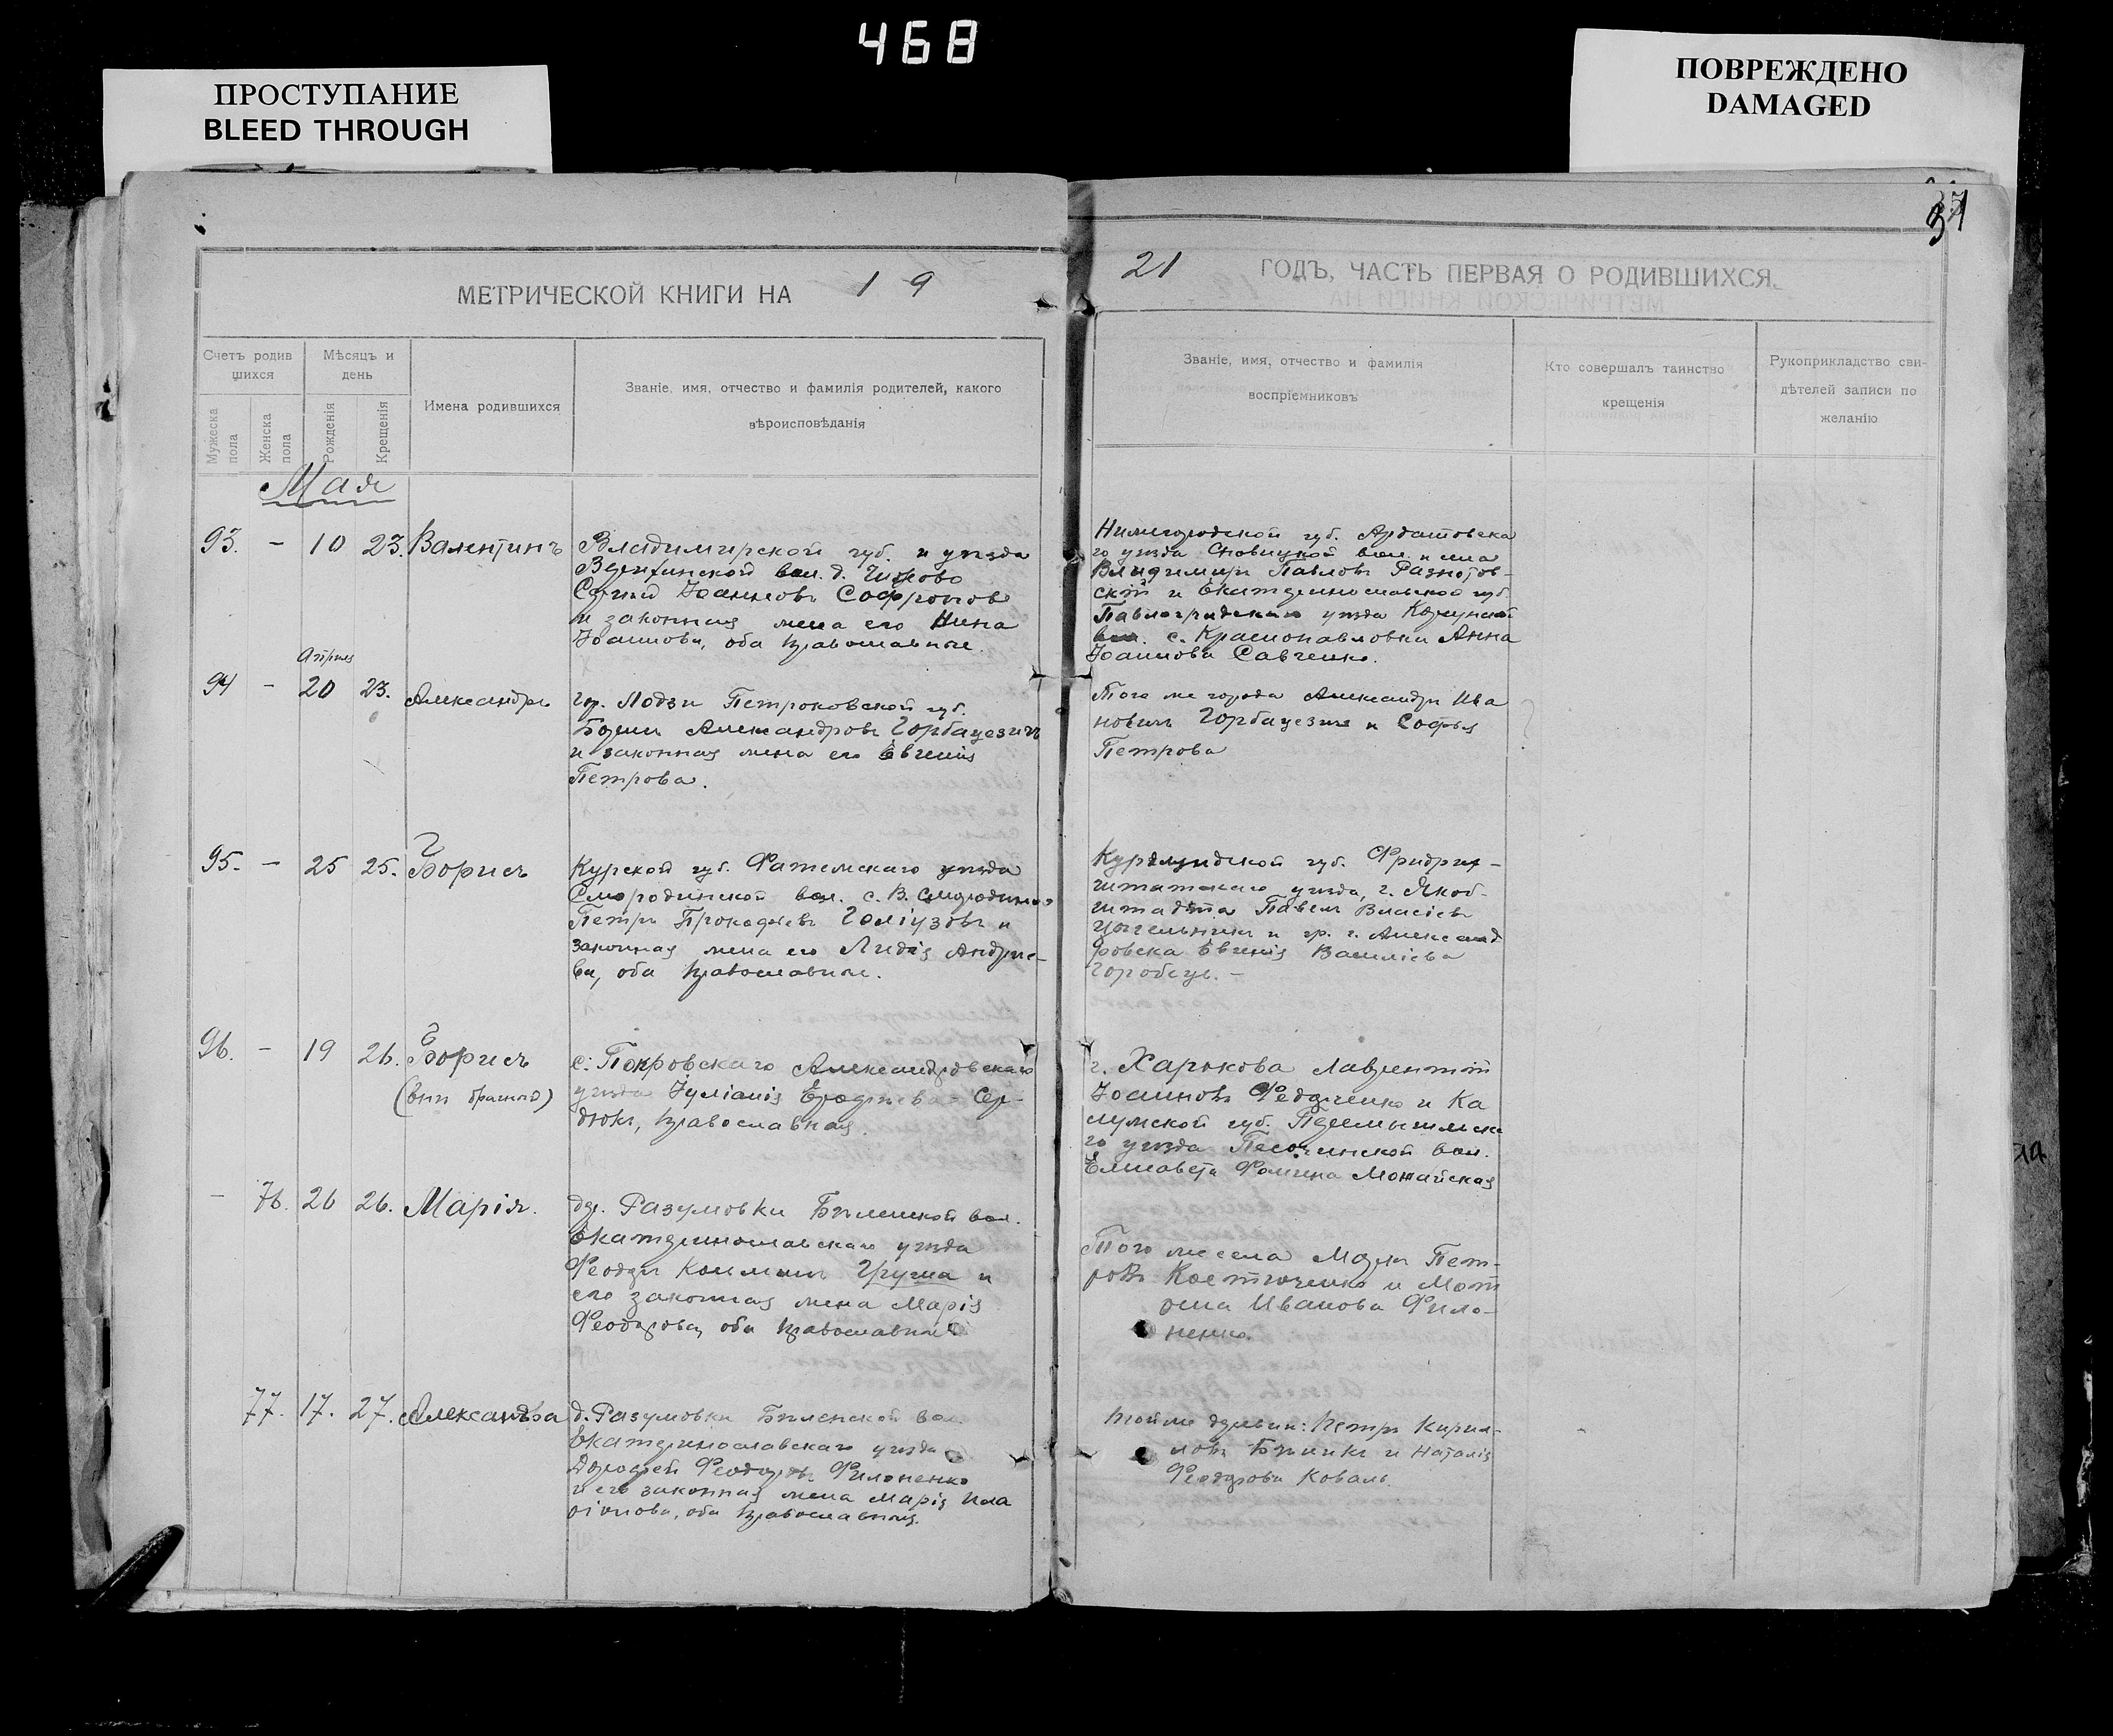 468
ПРОСТУПАНИЕ
BLEED THROUGH
ПОВРЕЖДЕНО
DAMAGED
МЕТРИЧЕСКОЙ КНИГИ НА 19
21 ГОДЪ, ЧАСТЬ ПЕРВАЯ О РОДИВШИХСЯ.
Счетъ родив
шихся
Мужеска
пола
Женска
пола
Мѣсяцъ и
день
Рожденія
Крещенія
Имена родившихся
Званіе, имя, отчество и фамилія родителей, какого
вѣроисповѣданія
Званіе, имя, отчество и фамилія
воспріемниковъ
Кто совершалъ таинство
крещенія
Рукоприкладство сви-
дѣтелей записи по
желанію
Мая
93. - 10 23. Валентинъ
Владимирской губ. и уѣзда
вол. д.
Сергій Іоанновъ Софроновъ
и законная жена его Нина
Іоаннова, оба православные.
Нижегородской губ. Ардатовска
го уѣзда вол. и села
Владимиръ Павловъ
скій и Екатеринославской губ.
Павлоградскаго уѣзда
вол. с. Краснопавловки Анна
Іоаннова Савченко.
Апрѣля
94 - 20 23. Александръ
гр. Лодзи Петроковской губ.
Александровъ Горбацевичъ
и законная жена его Евгенія
Петрова.
Того же города Александръ Ива
новичъ Горбацевичъ и Софья
Петрова
95. - 25 25. Борисъ
Курской губ. Фатежскаго уѣзда
Смородинской вол. с. В. Смородиноо
Петръ Прокофьевъ и
законная жена его Лидія Андрее-
ва, оба православные.
Курляндской губ. Фридрих-
штатскаго уѣзда, г. Якоб-
штадта Павелъ Власіевъ
и гр. г. Александ
ровска Евгенія Василіева
Горобецъ. -
96. - 19 26. Борисъ
(внѣ брачный)
с. Покровскаго Александровскаго
уѣзда Іуліанія Ерофѣева Сер-
дюкъ, православная.
г. Харькова Лаврентій
Іоанновъ Федорченко и Ка
лужской губ. Перемышльска
го уѣзда Песоченской вол.
Елисавета Фомина Можайская
- 76. 26 26. Марія.
дер. Разумовки Бѣленской вол.
Екатеринославскаго уѣзда
Феодоръ и
его законная жена Марія
Феодорова, оба православные
Того же села Пет-
ровъ Костюченко и Мотр
она Иванова Фило-
ненко.
77. 17. 27. Александра
д. Разумовки Бѣленской вол.
Екатеринославскаго уѣзда
Дорофей Феодоровъ Филоненко
и его законная жена Марія Ила
ріонова, оба православные.
Той же деревни: Петръ Кирил-
ловъ и Наталія
Феодорова Коваль.